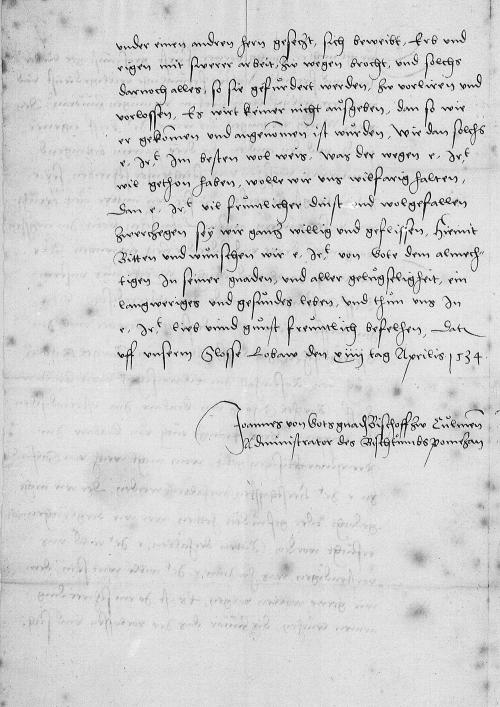 vnder einen andren hern gesetzt, sich beweibt, Erb vnd
eigen mit swerer arbeit, zw wegen brocht, vnd solchs
darnoch alles, so sie gefurdert werden, zw vorliren vnd
vorlossen, Es wirt keiner nicht außgeben, dan so wie
er gekomen vnd angenomen ist wurden, Wie dan solchs
e. Irt. Im besten wol weis, was der wegen e. Irt.
wil gethon haben, wolle wir vns wilfarig halten,
Dan e. Irt. vil fruntlicher dinst vnd wolgefallen
zwerczegen sey wir gancz willig vnd geflissen, Hiemit
Bitten vnd wunschen wir e. Irt. von Gote dem almech-
tigen In seiner gnaden, vnd aller gelugseligheit, ein
langweriges vnd gesundes leben, vnd thun vns In
e. Irt. lieb vnnd gunst freuntlich befelhen, Dat.
vff vnserm Slosse Lobaw den xiiii tag Aprilis 1534
Joannes von Gots gnad Bischoff zw Culmen
Administrator des Bischtumbs pomezan